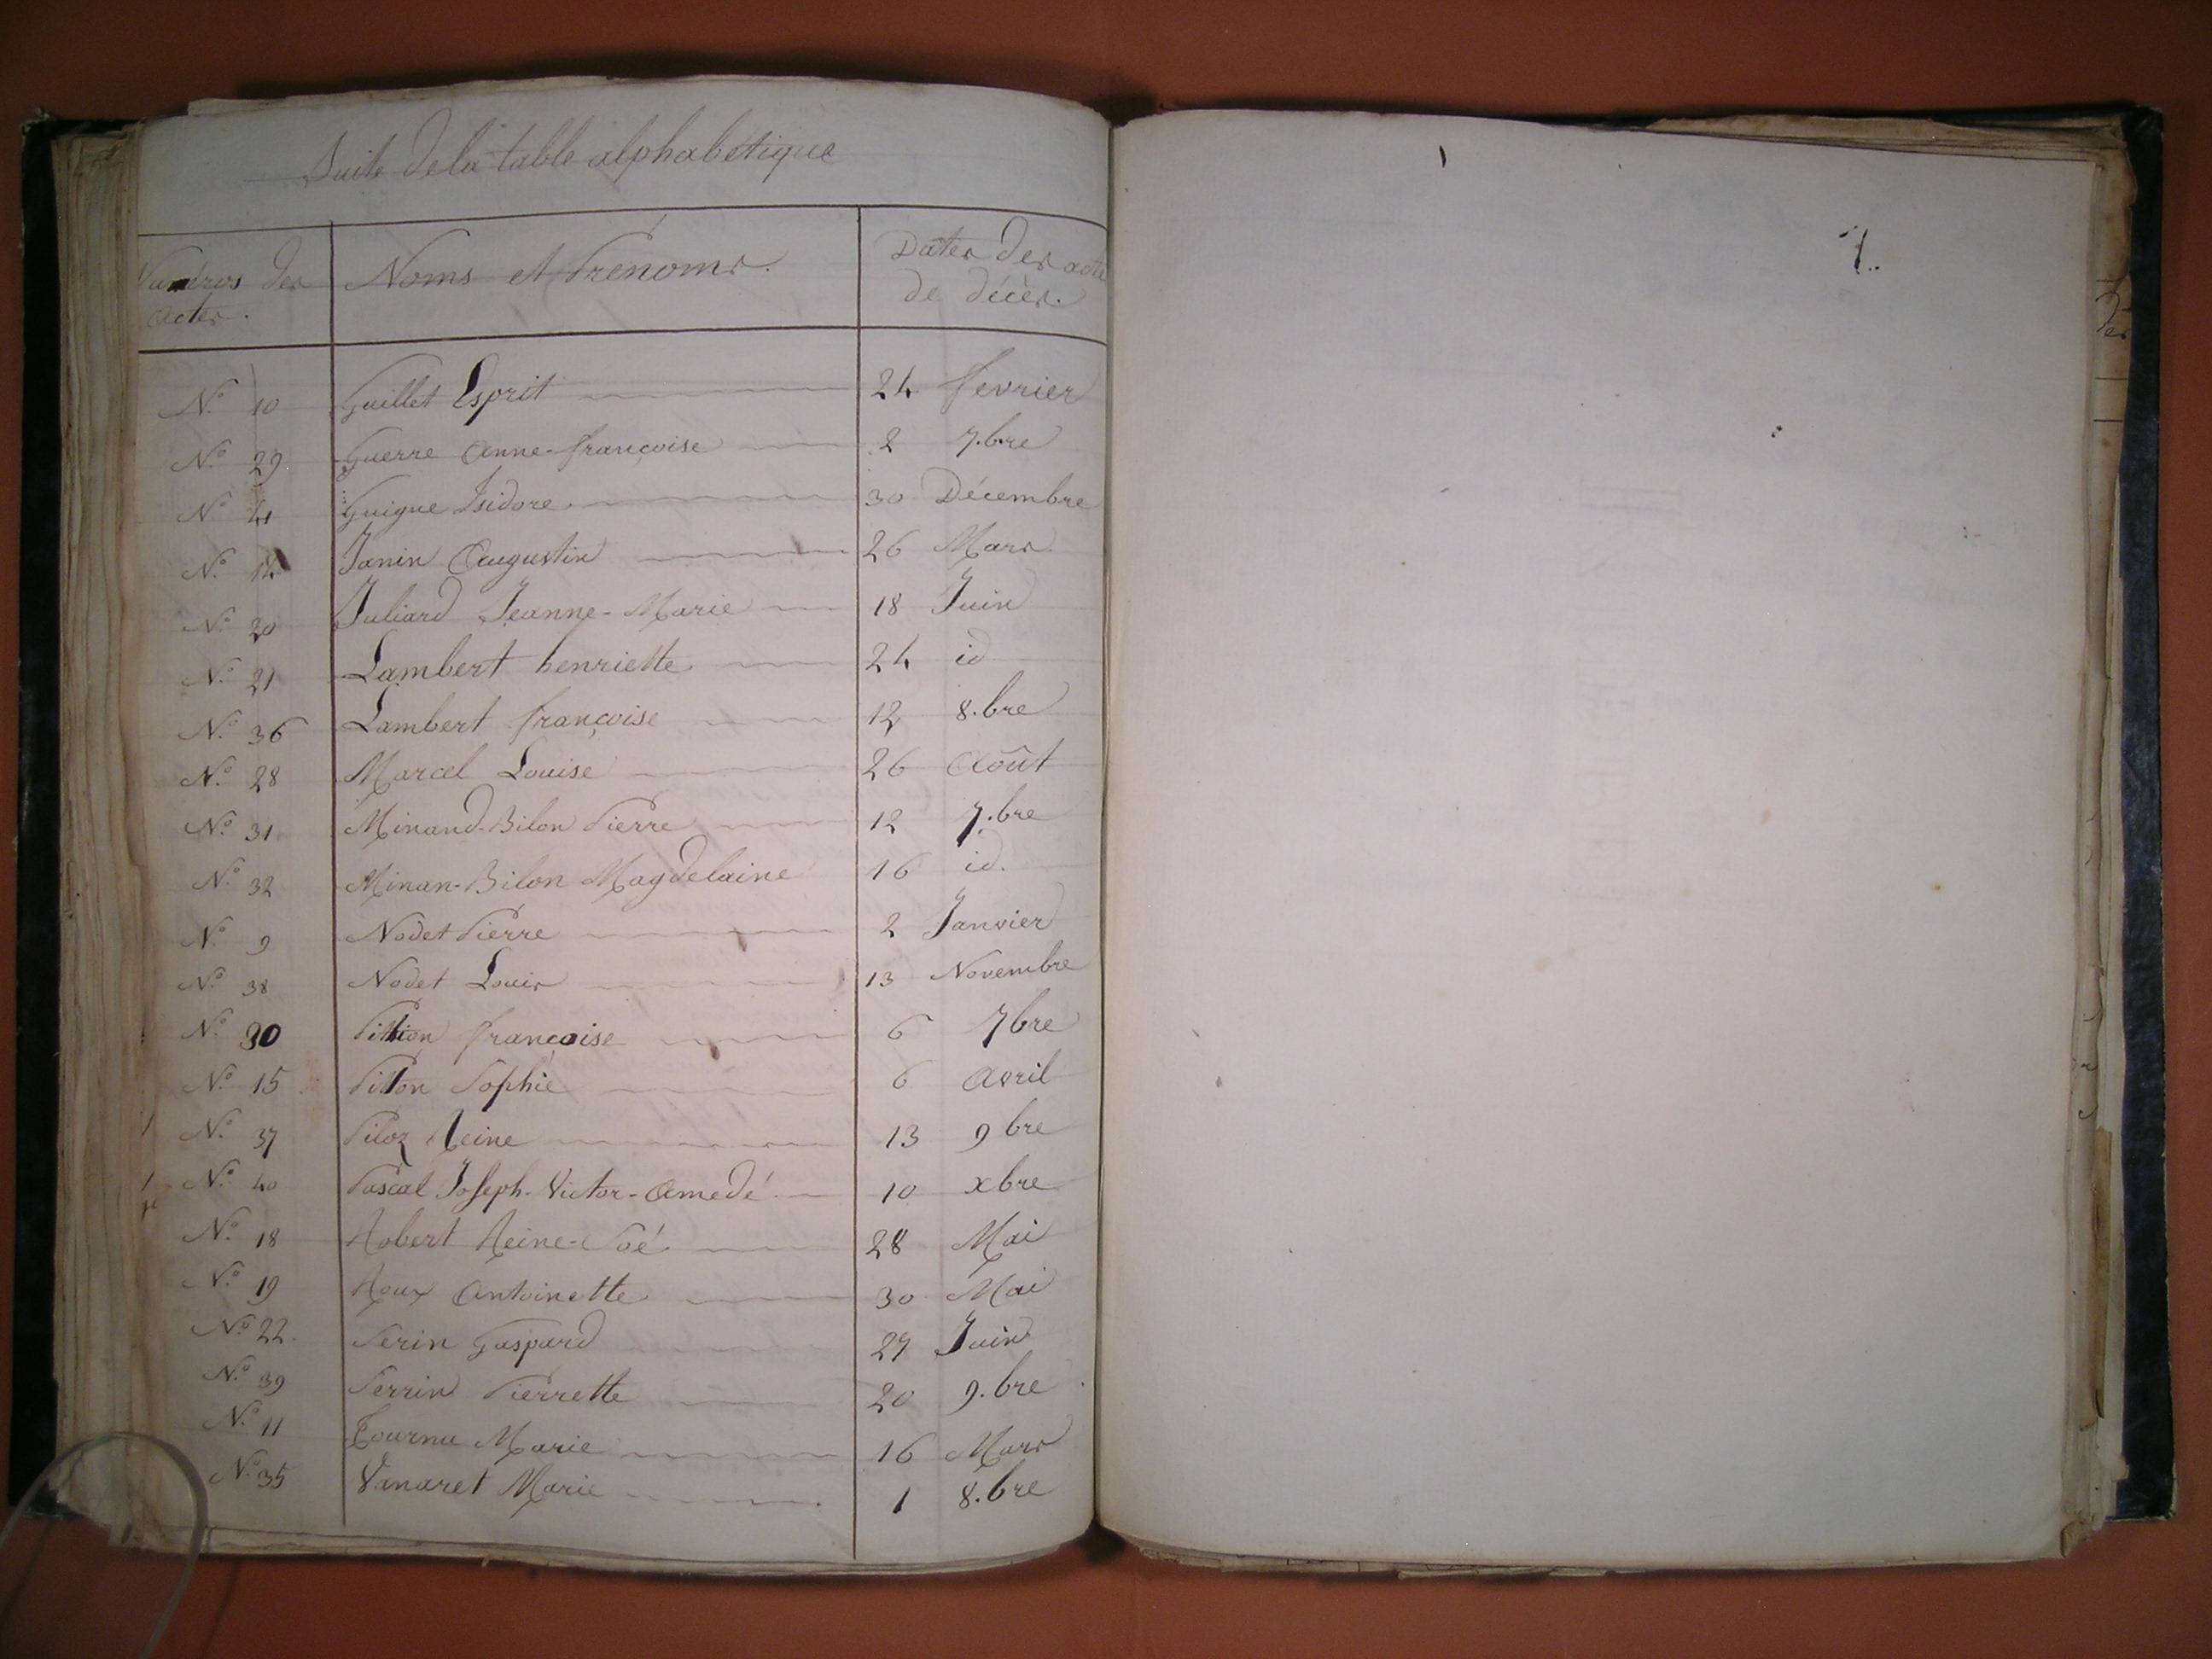 Suite de la table alphabétique
Numéros des actes. Noms et Prénoms. Dates des actes de décès.
N.º 10 Guillet Esprit 24 fevrier
N.º 29 Guerre Anne-françoise 2 7.bre
N.º 41 Guigue Isidore 30 Décembre
N.º 14 Janin Augustin 26 Mars
N.º 20 Juliard Jeanne-Marie 18 Juin
N.º 21 Lambert henriette 24 id
N.º 36 Lambert françoise 12 8.bre
N.º 28 Marcel Louise 26 Août
N.º 31 Minand-Bilon Pierre 12 7.bre
N.º 32 Minan-Bilon Magdelaine 16 id.
N.º 9 Nodet Pierre 2 Janvier
N.º 38 Nodet Louis 13 Novembre
N.º 30 Pittion françoise 6 7bre
N.º 15 Pitton Sophie 6 Avril
N.º 37 Piloz Reine 13 9bre
N.º 40 Pascal Joseph-Victor-Amedé 10 xbre
N.º 18 Robert Reine- 28 Mai
N.º 19 Roux Antoinette 30 Mai
N.º 22 Serin Gaspard 27 Juin
N.º 39 Serrin Pierrette 20 9.bre
N.º 11 Tournu Marie 16 Mars
N.º 35 Vanaret Marie 1 8.bre